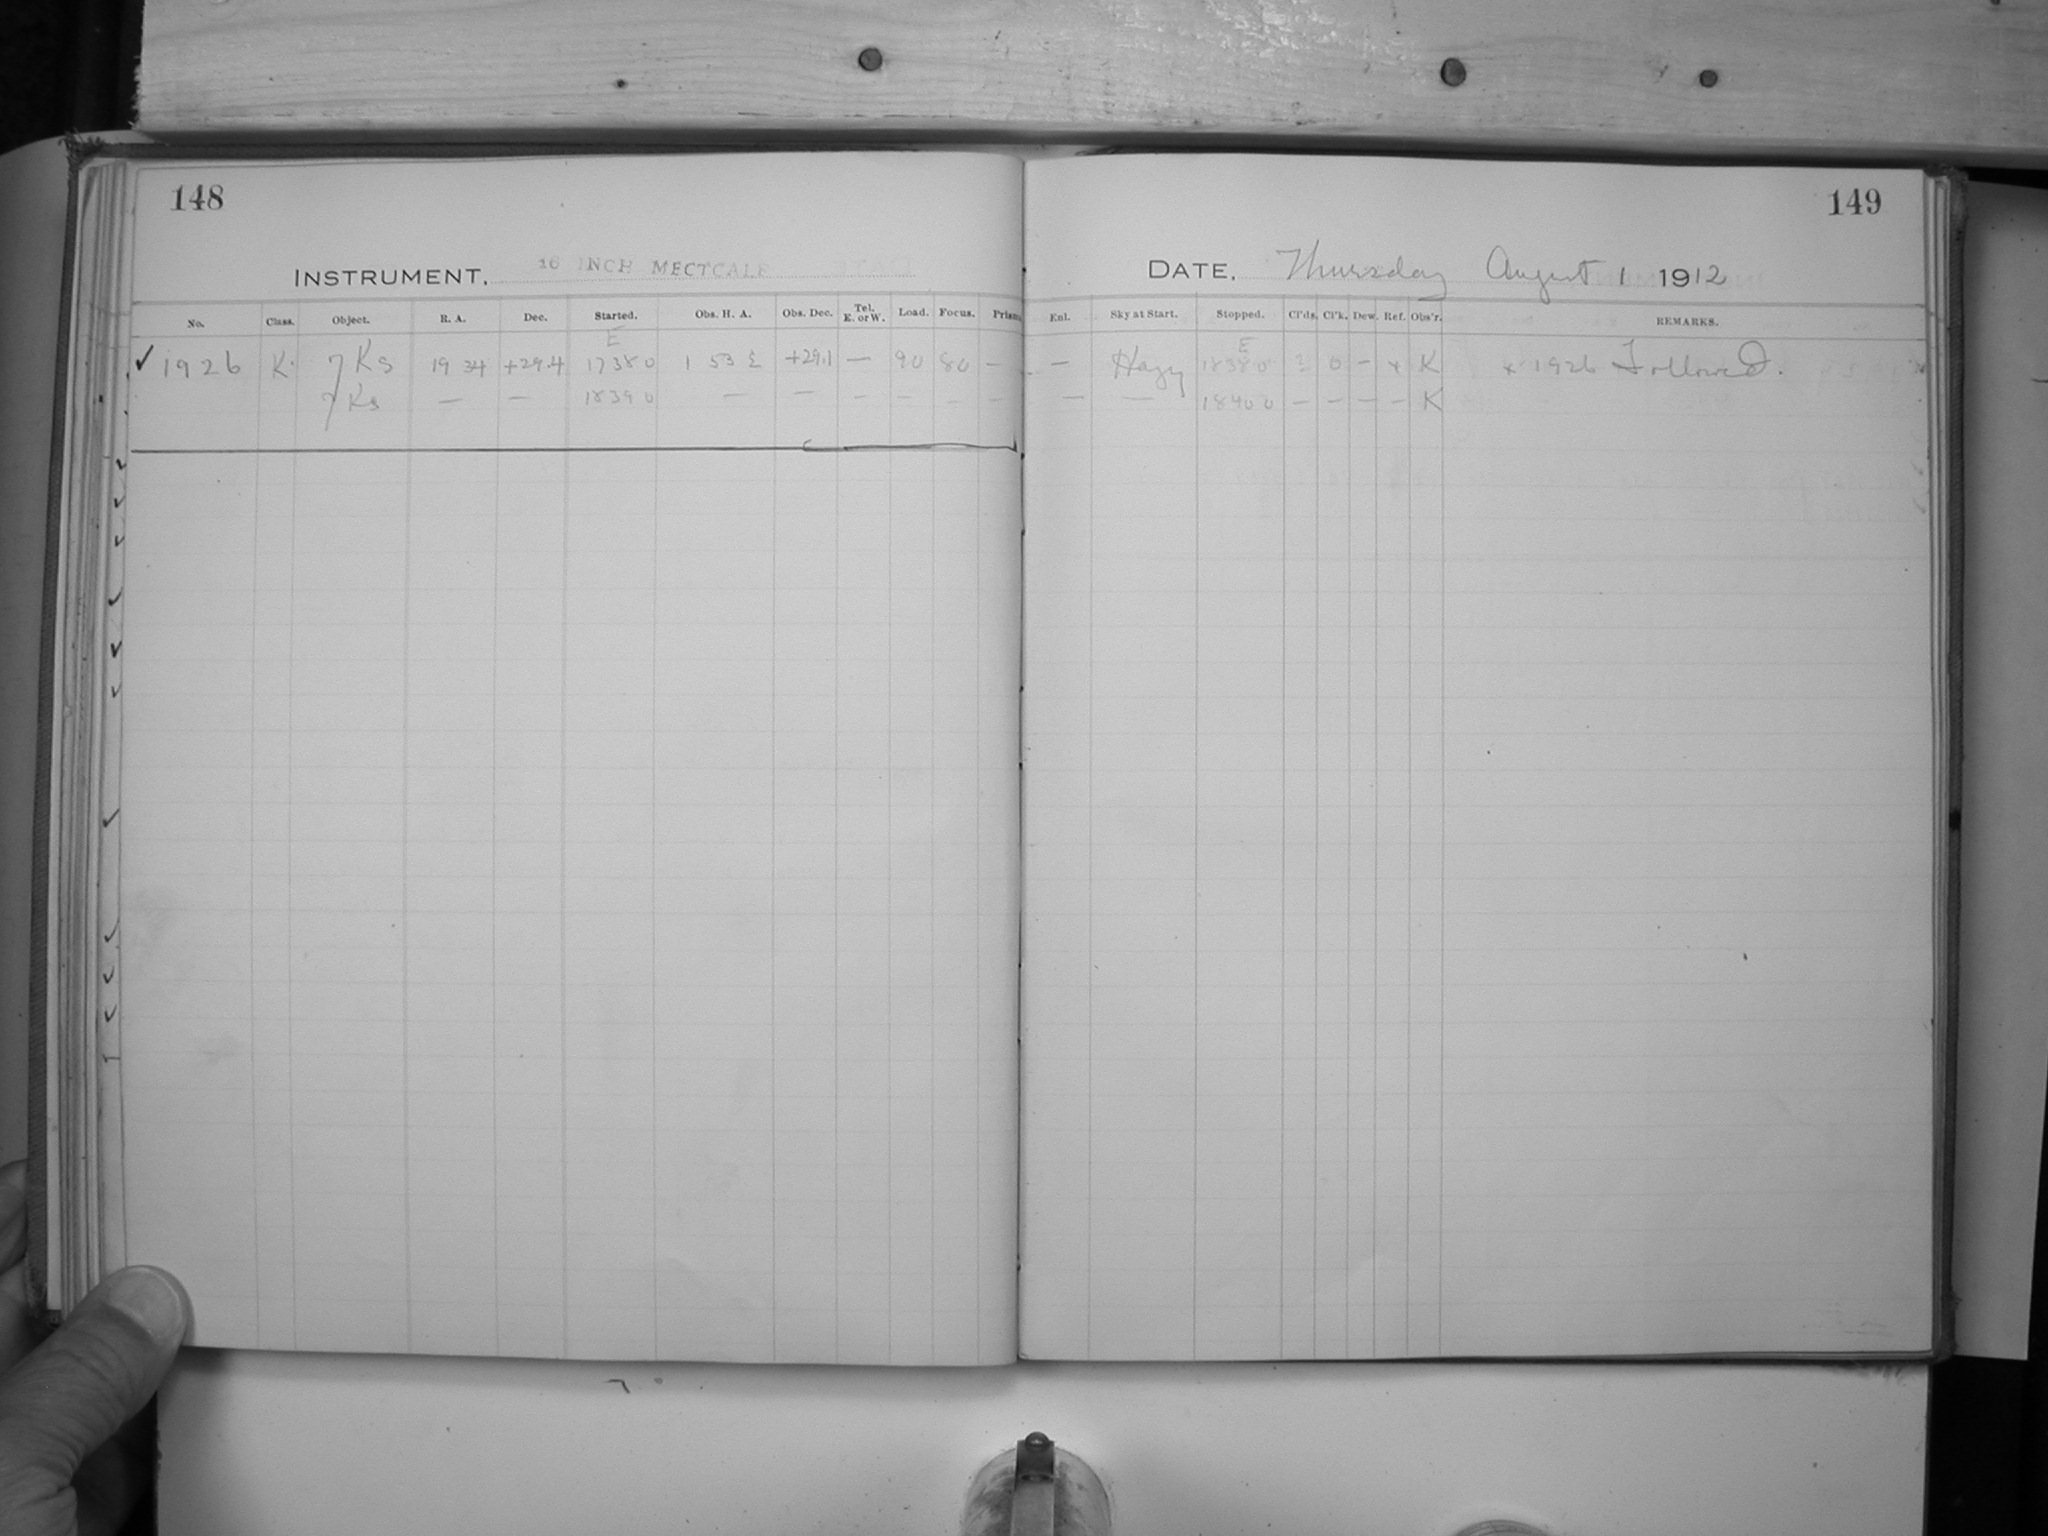 148
INSTRUMENT. 16 INCH METCALF
No. Class. Object. R. A. Dec. Started. Obs. H. A. Obs. Dec. Tel. E. or W. Load. Focus. Prism
E
✓ 1926 K. 7 Ks 19 34 +29.4 17380 1 53 E +29.1 — 90 80 —
7 Ks — — 18390 — — — — — —
149
DATE. Thursday August 1 1912
Enl. Sky at Start. Stopped. Cl'ds. Cl'k. Dew. Ref. Obs'r. REMARKS.
E
— Hazy 18380 0 — x K x 1926 Followed.
— — 18400 — — — — K